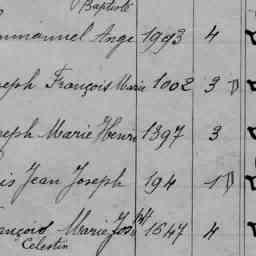 Baptiste
mmanuel Ange 1993 4
seph François Marie 1002 3 D
seph Marie Henri 1397 3
is Jean Joseph 194 1 D
ançois Marie Jos 1647 4
Celestin